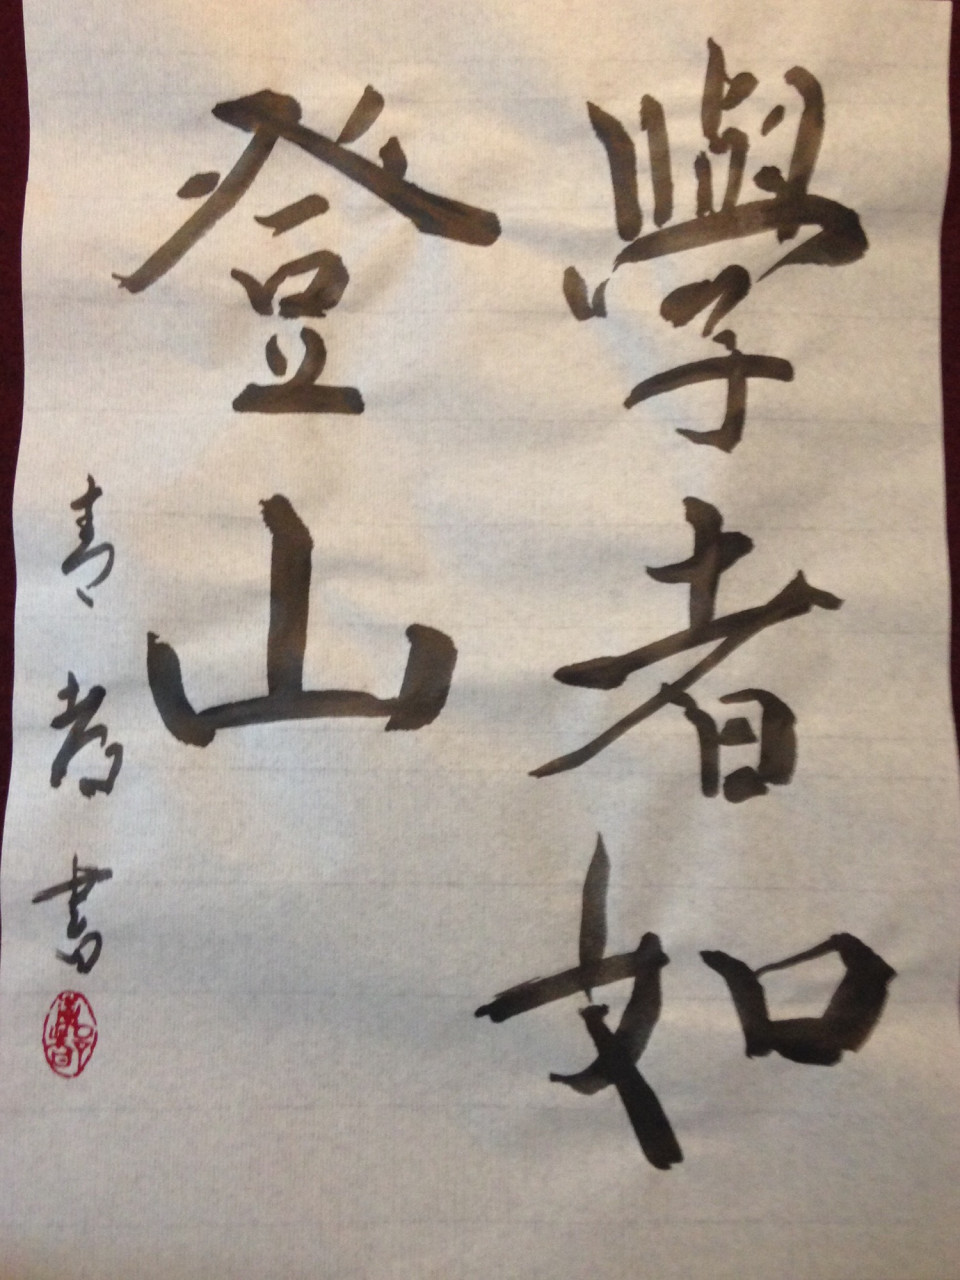 學者如
登山
青 書